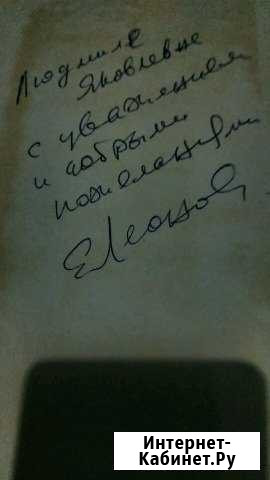 Людмиле
Яковлевне
с уважением
и добрыми
пожеланиями
ЕЛеонов
Интернет-
Кабинет.Ру